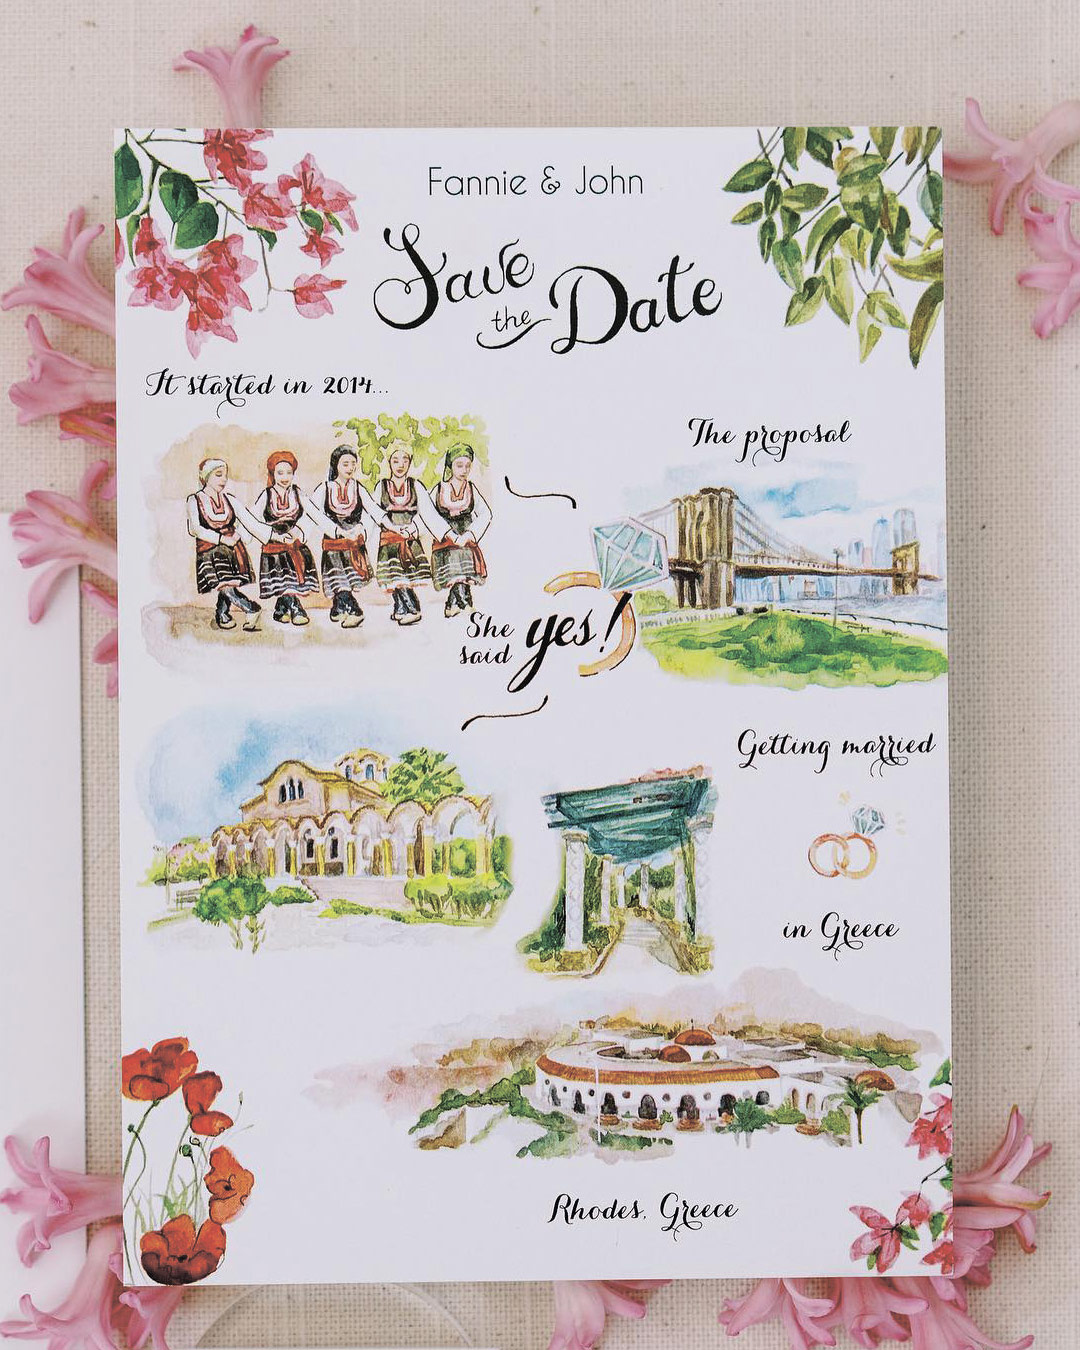 Fannie & John
Save
the Date
It started in 2014...
The proposal
She
said yes!
Getting married
in Greece
Rhodes, Greece